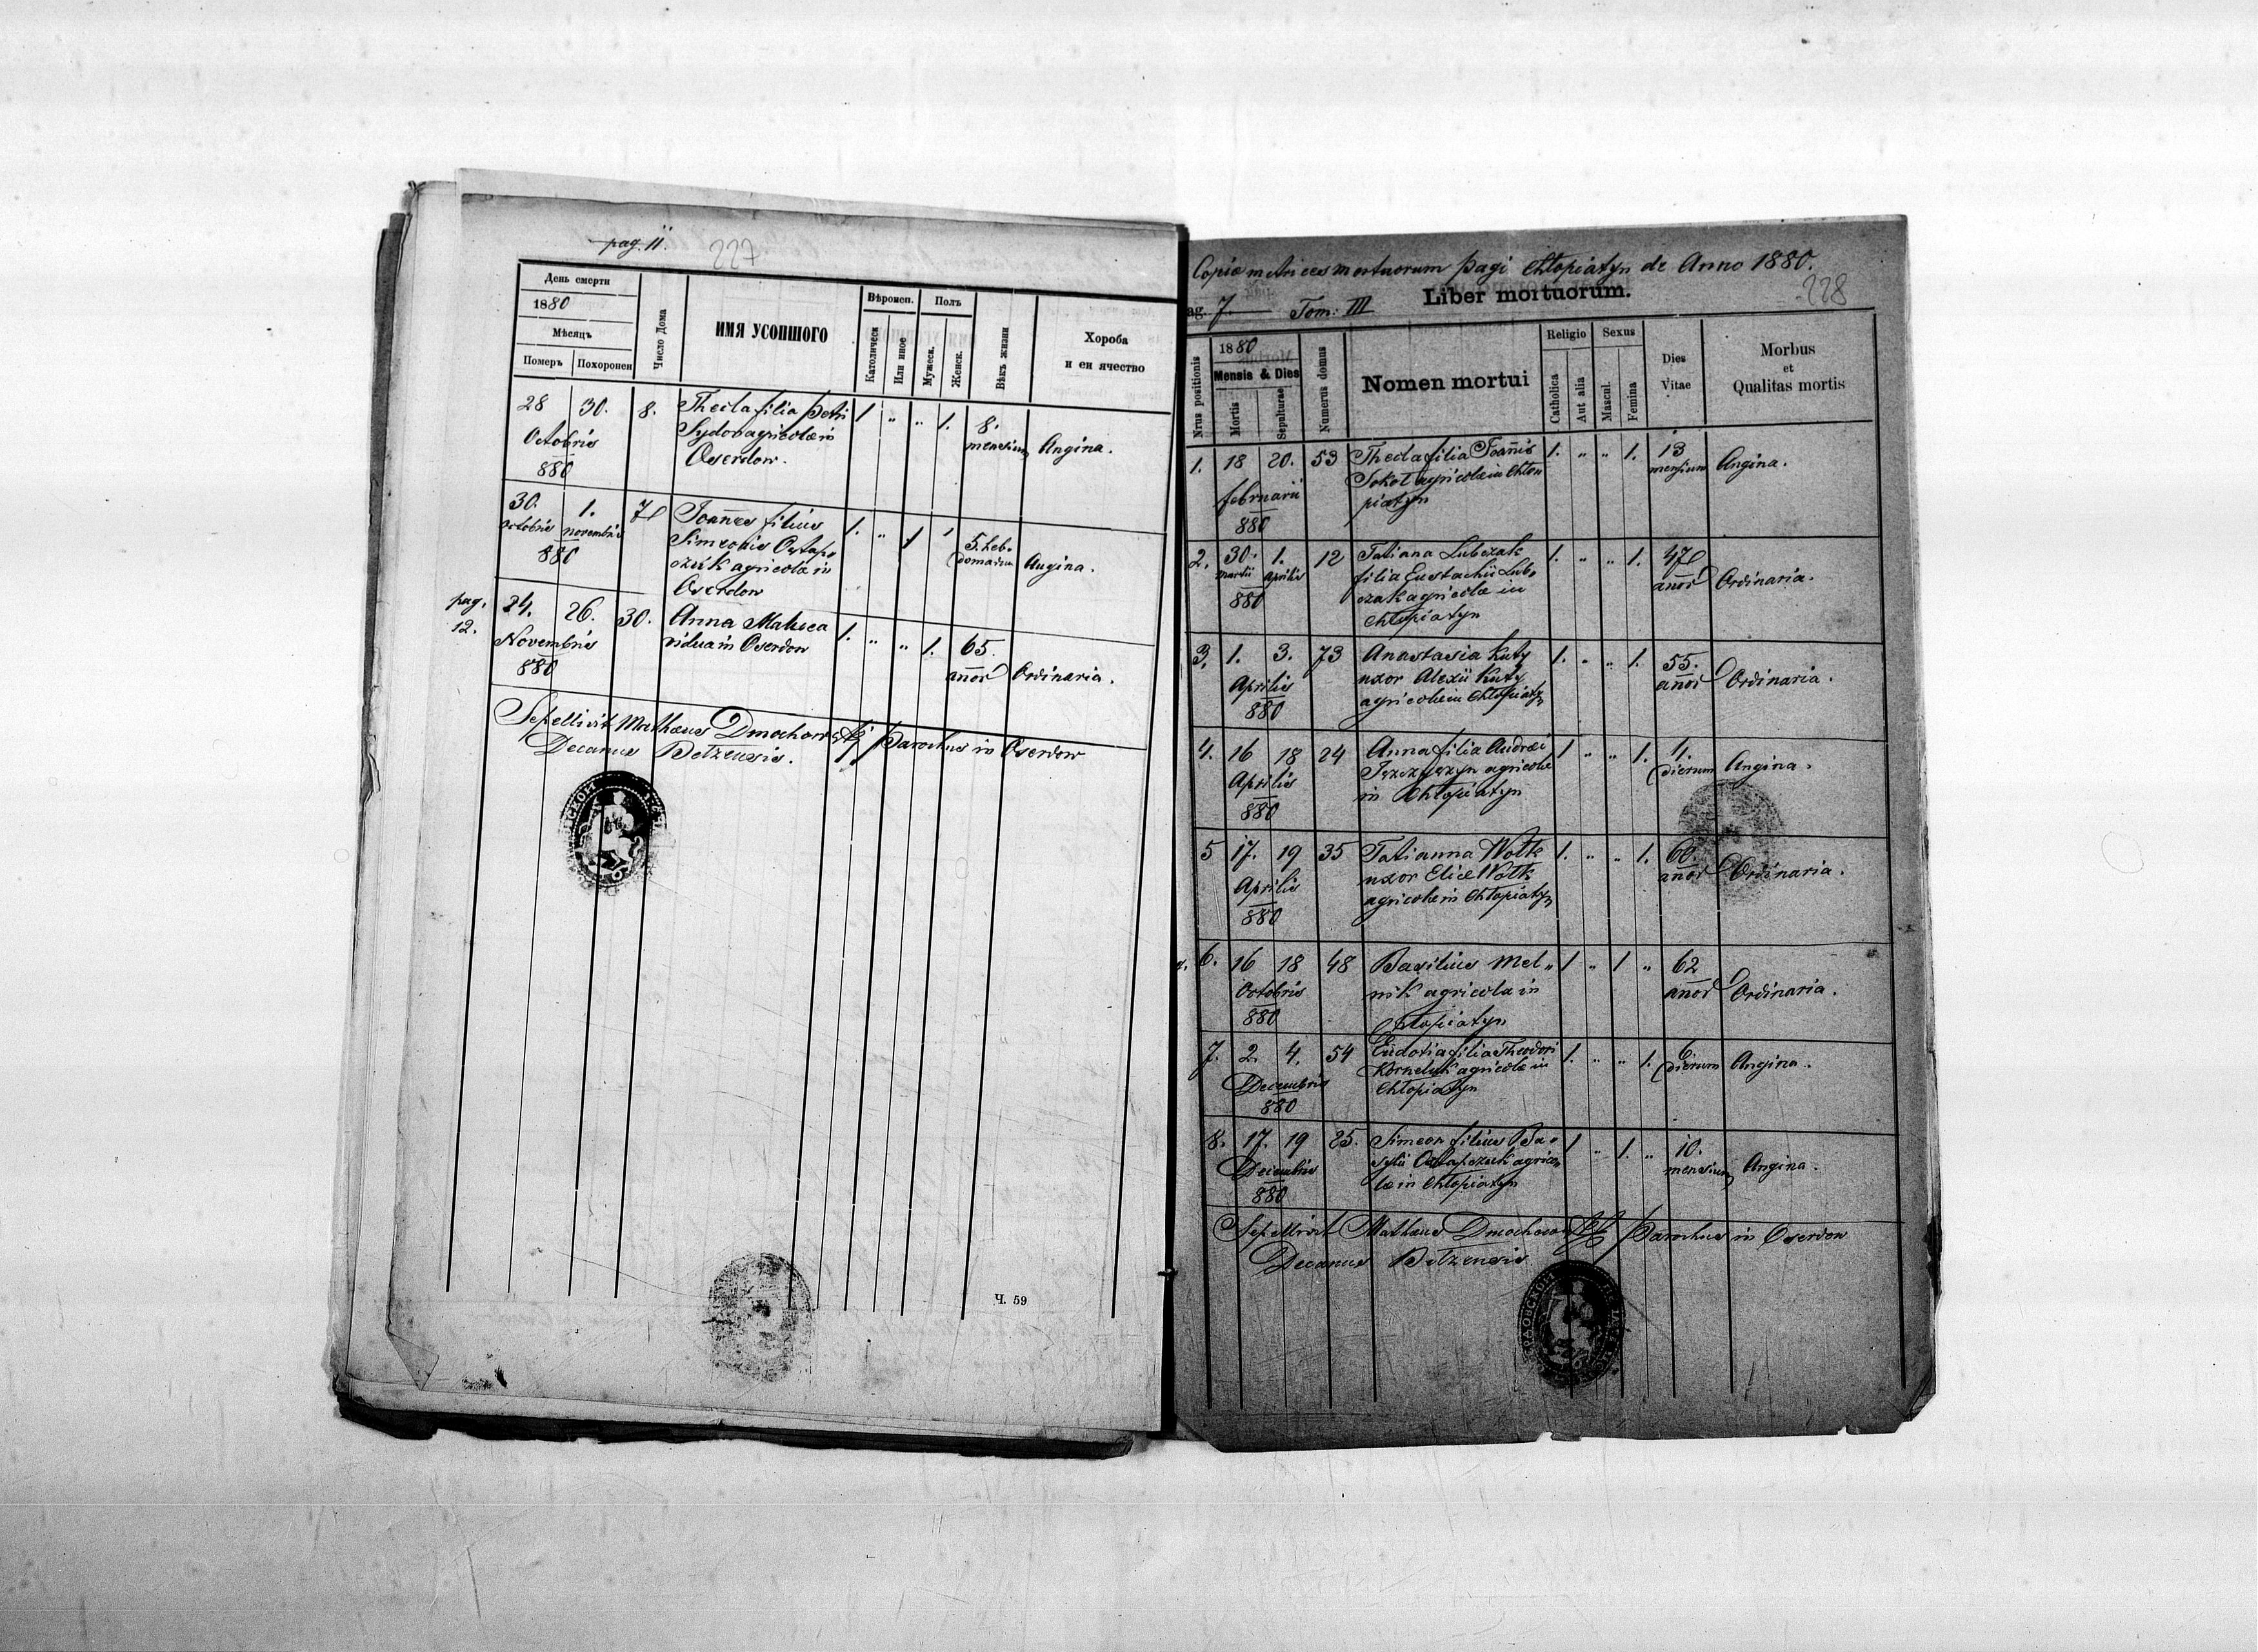 pag. 11.
227
День смерти
1880
Мѣсяцъ
Померъ Похоронен
Число Дома
ИМЯ УСОПШОГО
Вѣроисп. Полъ
Католическ
Или иное
Мужеск.
Женск.
Вѣкъ жизни
Хороба
и еи ячество
28 30. 8. Thecla filia Petri 1 " " 1. 8.
Octobris Sydor agricolæ in mensium Angina.
880 Oserdow.
30. 1. 7 Joannes filius 1. " 1 '
octobris novembris Simeonis Ostap= 5. heb=
880 czúk agricolæ in domadum Angina.
Oserdow
pag. 12.
24. 26. 30. Anna Malica 1. " " 1. 65.
Novembris vidua in Oserdow
880 anor Ordinaria.
Sepellivit Mathæus Dmochowskij Parochus in Oserdow
Decanus Belzensis.
Ч. 59
Copiæ metrices mortuorum pagi Chłopiatyn de Anno 1880.
228
Liber mortuorum.
ag. 7. Tom: III
Nrus positionis
1880
Mensis & Dies
Mortis
Sepulturae
Numerus domus
Nomen mortui
Religio Sexus
Catholica
Aut alia
Mascul.
Femina
Dies
Vitae
Morbus
et
Qualitas mortis
1. 18 20. 53 Thecla filia Joannis 1. " " 1. 13
februarii Sokol agricolæ in Chło= mensium Angina.
880 piatyn
2. 30. 1. 12 Tatiana Lubczak 1. " " 1. 47
Martii Aprilis filia Eustachii Lub=
880 czak agricolæ in anor Ordinaria.
Chłopiatyn
3. 1. 3. 73 Anastasia Kuty 1. " " 1. 55.
Aprilis uxor Alexii Kuty anor Ordinaria.
880 agricolæ in Chłopiatyn
4. 16 18 24 Anna filia Andreæ 1 " " 1. 4.
Aprilis agricolæ dierum Angina.
880 in Chłopiatyn
5 17. 19 35 Tatianna Wolk 1. " " 1. 60.
Aprilis uxor Eliæ Wolk anor Ordinaria.
880 agricolæ in Chłopiatyn
6. 16 18 48 Basilius Mel= 1 " 1 " 62
Octobris nik agricola in anor Ordinaria.
880 Chłopiatyn
7. 2. 4. 54 Eudotia filia Theodori 1. " " 1. 6
Decembris Korneluk agricolæ in dierum Angina.
880 Chłopiatyn
8. 17. 19 25. Simeon filius Ba= 1 " 1. " 10.
Decembris sylii Ostapczuk agrico= mensium Angina.
880 læ in Chłopiatyn
Sepellivit Mathæus Dmochowskij Parochus in Oserdow
Decanus Belzensis